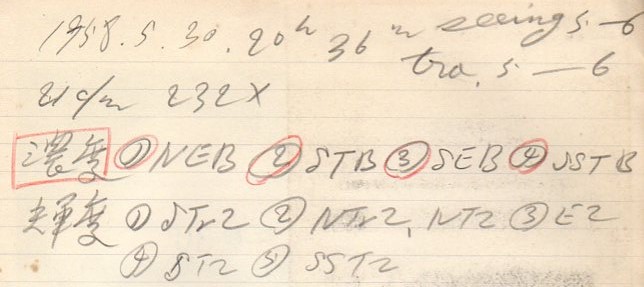 1958.5.30.20h 36m seeing 5-6
tra. 5-6
21cm 232X
濃度 ①NEB ②STB ③SEB ④SSTB
輝度 ①STrZ ②NTrZ, NTZ ③EZ
④STZ ⑤SSTZ